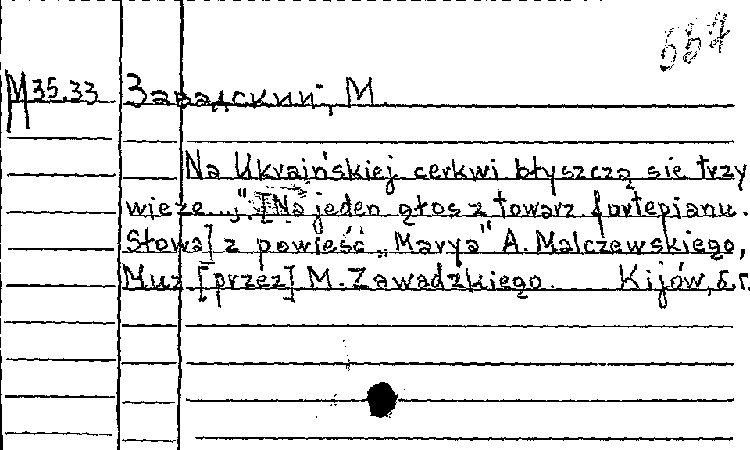 557
М 35.33 Завадский, М.
Na Ukraińskiej cerkwi błyszczą sie trzy
wieże..." [Na jeden głos z towarz fortepianu.
Słowa] z powieść „Marya" A. Malczewskiego,
Muz [przez] M. Zawadzkiego. Kijów, б.г.